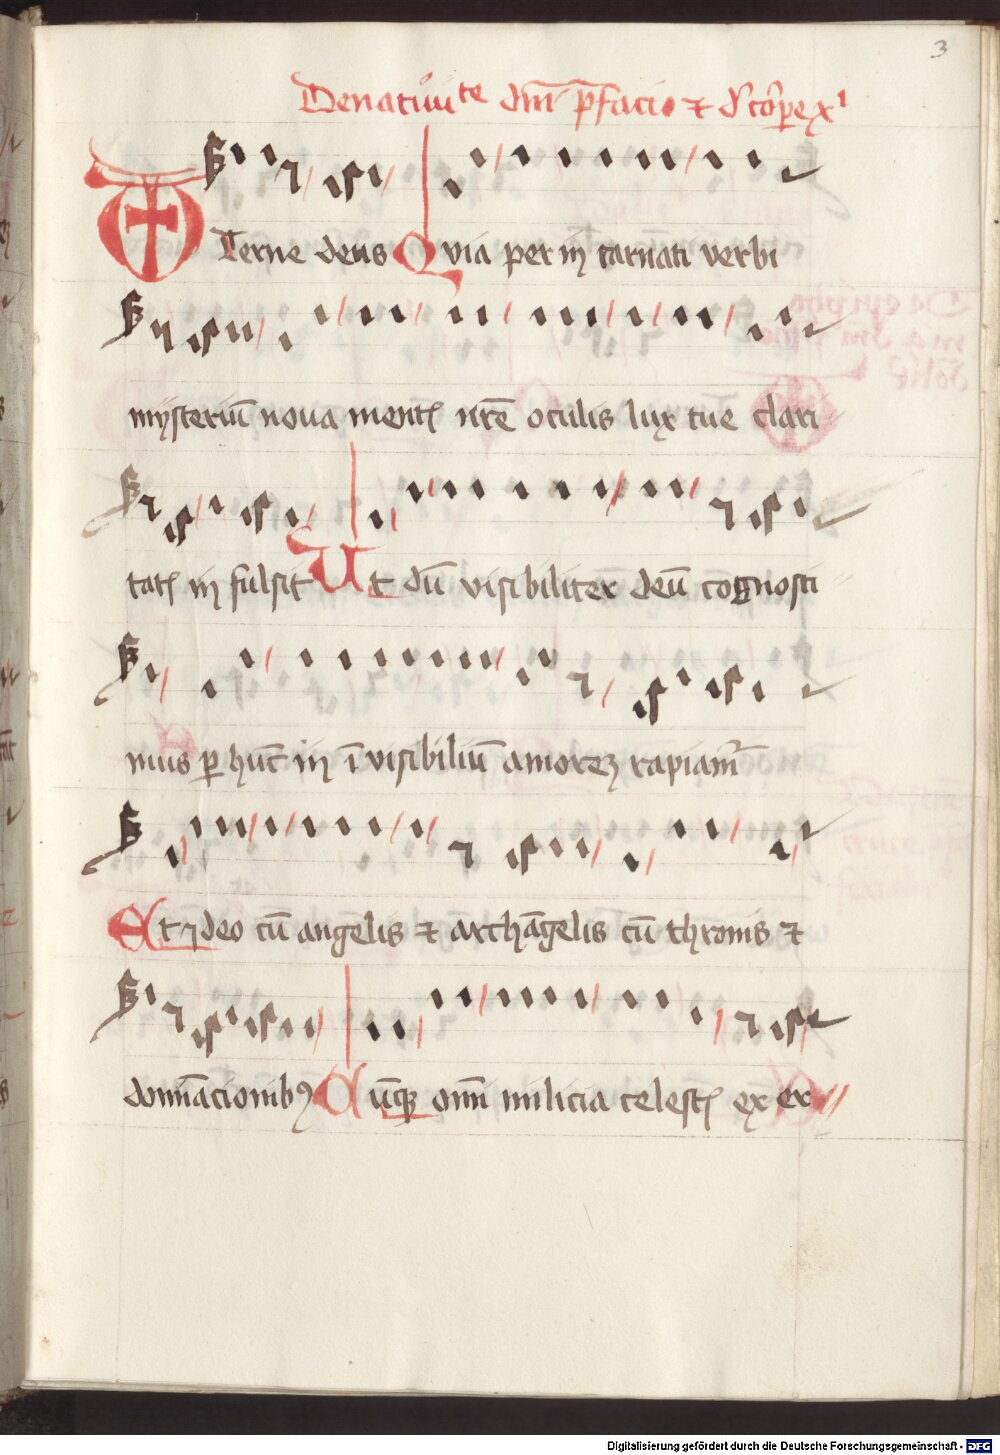 3
De natiuitate dm̄ p̄facio ⁊ d' cor̄pe xͥ
Eterne deus Quia per in carnati verbi
mysteriū noua mentꝭ nr̄e oculis lux tue clari
tatꝭ in fulsit Ut dū visibiliter deū cognosci
mus ꝑ hūc in ī visibiliū amorem rapiam̄
Et ideo cū angelis ⁊ archāgelis cū thronis ⁊
domīacionibꝰ Cūqꝫ om̄i milicia celestꝭ ex er
Digitalisierung gefördert durch die Deutsche Forschungsgemeinschaft - DFG